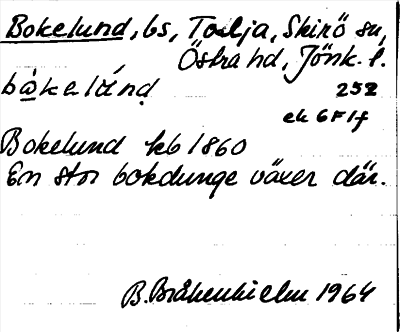 Bokelund, bs, Torlja, Skirö sn,
Östra hd, Jönk. l.
bå̀kelún̥d
252
ek 6F1f
Bokelund kb 1860
En stor bokdunge växer där.
B. Bråkenhielm 1964